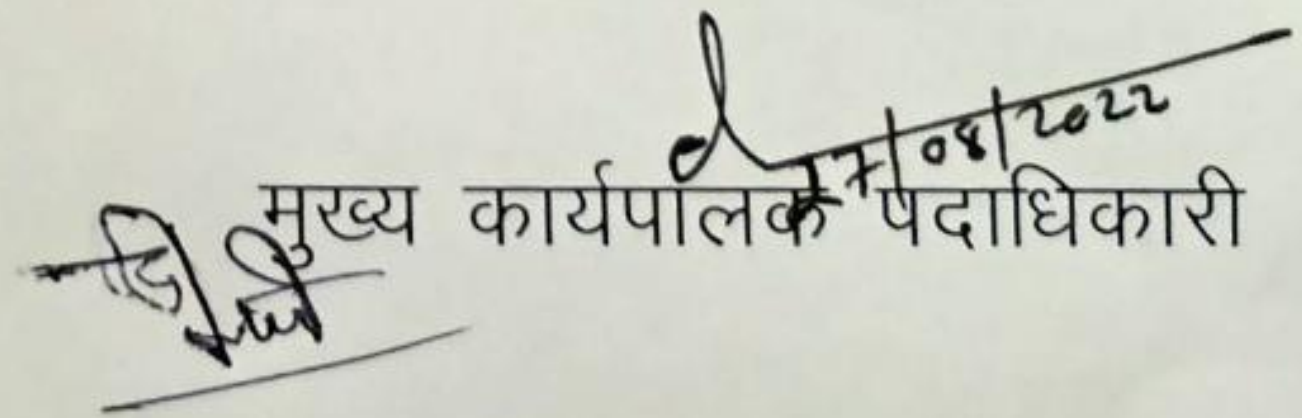 17/08/2022
मुख्य कार्यपालक पदाधिकारी